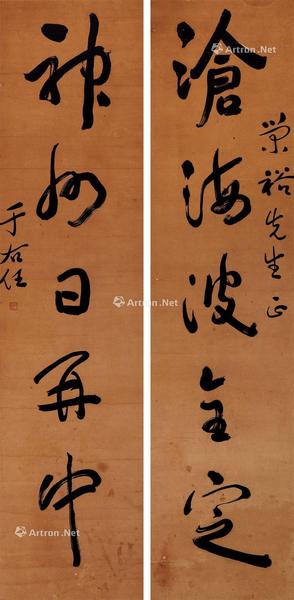 滄海波全定
榮裕先生正
神州日再中
于右任
Artron.Net
Artron.Net
Artron.Net
Artron.Net